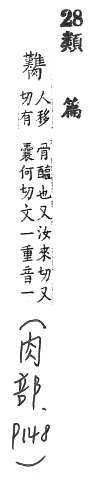 28 類篇
臡
人移
切有
骨醢也又汝來切又
囊何切文一重音一
(肉部、P148)